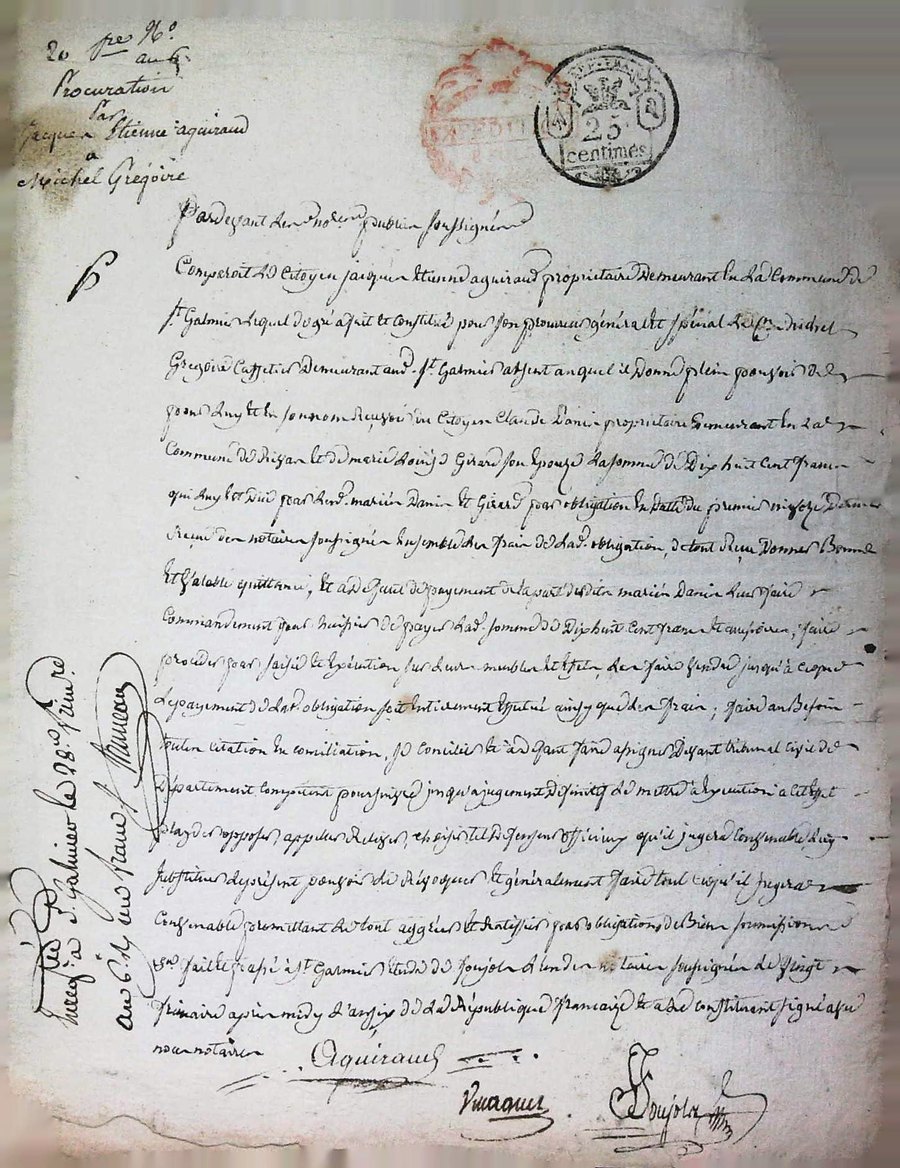 20 fre N°
an 6
Procuration
Par
Jacques Etienne aguiraud
a
Michel Grégoire
REP. FRA.
25
centimes
Pardevant les no.res publics soussignés
Comparoit le Citoyen jacques Etienne aguiraud propriétaire Demeurant en La Commune de
st. Galmier lequel de gré a fait et Constitué pour son procureur général et spécial le Cen. Michel
Gregoire Caffetier Demeurant aud. st. Galmier absent auquel il Donne plein pouvoir de
pour luy et en son nom Reçevoir du Citoyen Claude Danis propriétaire Demeurant en La
Commune de et de marie Girard son Epouze La somme de Dix huit Cent francs
qui luy est Due par lesd. mariés Danis et Girard par obligation en datte du premier Dernier
Reçue des notaires soussignés Ensemble les frais de Lad. obligation, de tout Reçu Donner Bonne
Et Valable quittance, Et a deffaut de payement de la part desdits mariés Danis leur faire
Commandement par huissier de payer Lad. somme de Dix huit Cent francs et accessoires, faire
proceder par saisie et exécution sur leurs meubles et Effets, les faire Vendre jusqu'à ce que
le payement de Lad. obligation soit Entierement Effectué ainsy que les frais ; faire au Besoin
toutes Citation en conciliation, se concilier et a deffaut faire assigner Devant tribunal civil de
Département Competent poursuivre jusqu'a jugement Définitif le mettre a Exécution a cet effet
plaider opposer, appeller Elire, choisir tel Deffenseur officieux qu'il jugera Convenable luy
substituer le présent pouvoir le Révoquer Et généralement faire tout ce qu'il jugera
Convenable promettant le tout aggréer et Ratiffier par obligations de Biens soumissions
fait et passé à st. Galmier Etude de Soujols L'un des notaires soussignés le Vingt
frimaire après midy L'an six de La République francaise et a Le constituant signé avec
nous notaires
Aguiraud
Soujols
Enregé à st. Galmier le 28 frimre.
an 6. Reçu un franc